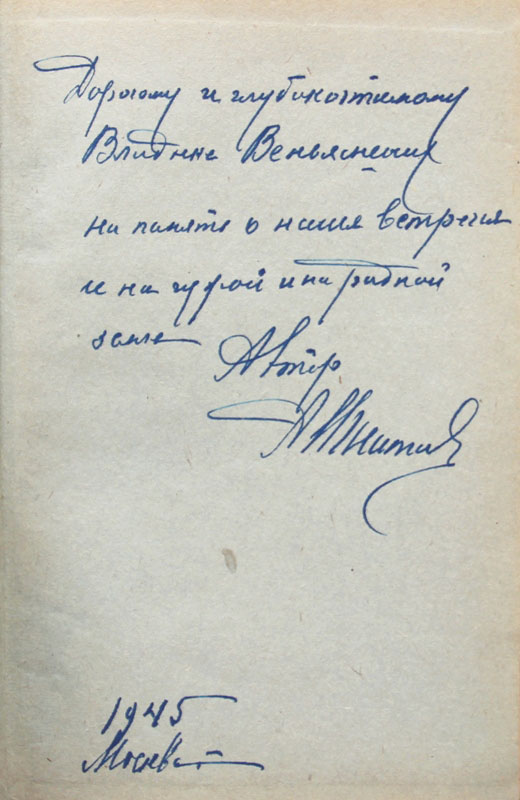 Дорогому и глубокочтимому
Владимиру Вениаминовичу
на память о наших встречах
и на чужой и на родной
земле
Автор
А Игнатьев
1945
Москва